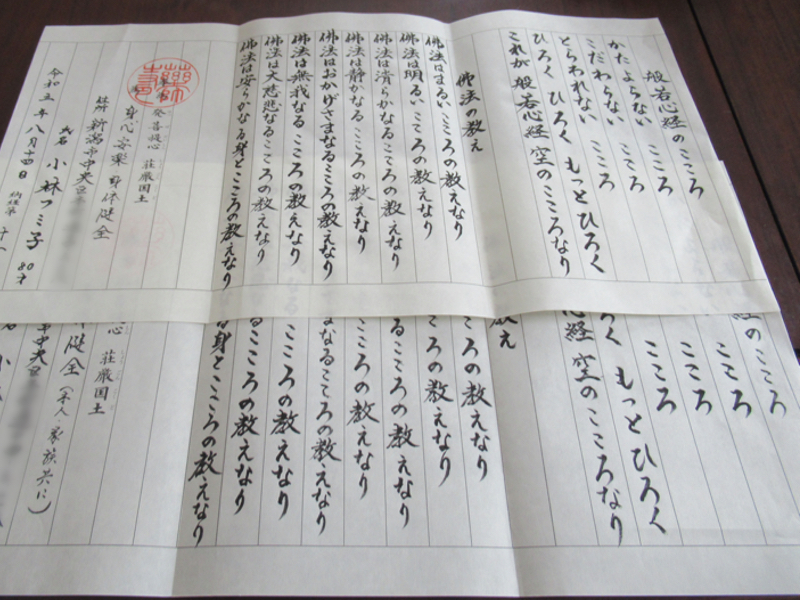 般若心経のこころ
かたよらない こころ
こだわらない こころ
とらわれない こころ
ひろく ひろく もっとひろく
これが 般若心経 空のこころなり
佛法の教え
佛法はまるい こころの教えなり
佛法は明るい こころの教えなり
佛法は清らかなる こころの教えなり
佛法は静かなる こころの教えなり
佛法はおかげさまなるこころの教えなり
佛法は無我なる こころの教えなり
佛法は大慈悲なるこころの教えなり
佛法は安らかなる身とこころの教えなり
発菩提心 荘厳国土
身心安楽 身体健全
住所 新潟市中央区
氏名 小林フミ子 80才
令和五年八月十四日
のこころ
こころ
こころ
こころ
ろく もっとひろく
心経 空のこころなり
教え
ころの教えなり
ころの教えなり
る こころの教えなり
こころの教えなり
まなるこころの教えなり
こころの教えなり
るこころの教えなり
る身とこころの教えなり
心 荘厳国土
健全(本人・家族共に)
市中央区